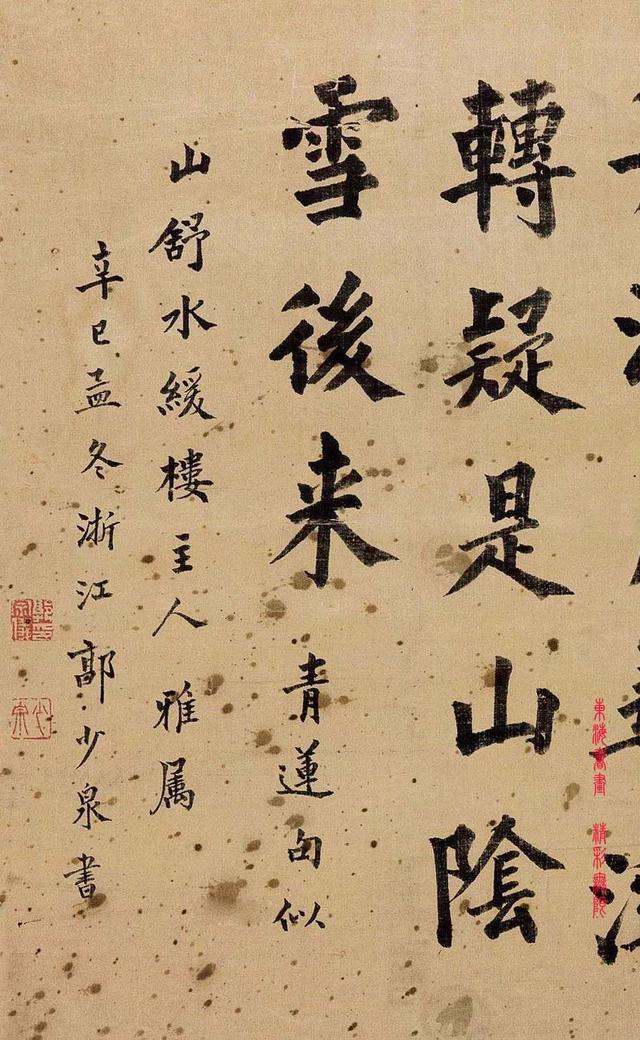 轉疑是山陰
雪後来 青蓮句似
山舒水緩樓主人 雅属
辛巳孟冬浙江郭少泉書
東海書畫 精彩無限